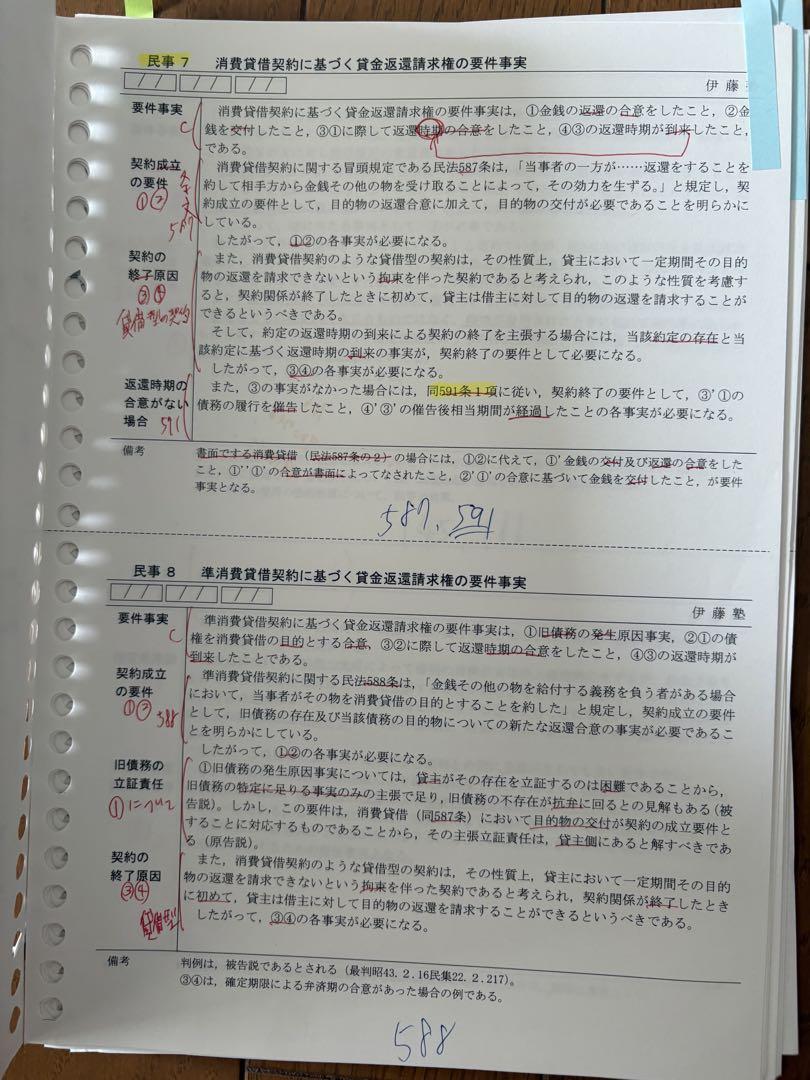 民事7 消費貸借契約に基づく貸金返還請求権の要件事実
/ / / / / /
伊藤
要件事実
C
消費貸借契約に基づく貸金返還請求権の要件事実は，①金銭の返還の合意をしたこと，②金
銭を交付したこと，③①に際して返還時期の合意をしたこと，④③の返還時期が到来したこと，
である。
契約成立
の要件
①②
587
消費貸借契約に関する冒頭規定である民法587条は，「当事者の一方が……返還をすることを
約して相手方から金銭その他の物を受け取ることによって，その効力を生ずる。」と規定し，契
約成立の要件として，目的物の返還合意に加えて，目的物の交付が必要であることを明らかに
している。
したがって，①②の各事実が必要になる。
契約の
終了原因
③④
貸借型の契約
また，消費貸借契約のような貸借型の契約は，その性質上，貸主において一定期間その目的
物の返還を請求できないという拘束を伴った契約であると考えられ，このような性質を考慮す
ると，契約関係が終了したときに初めて，貸主は借主に対して目的物の返還を請求することが
できるというべきである。
そして，約定の返還時期の到来による契約の終了を主張する場合には，当該約定の存在と当
該約定に基づく返還時期の到来の事実が，契約終了の要件として必要になる。
したがって，③④の各事実が必要になる。
返還時期の
合意がない
場合
591
また，③の事実がなかった場合には，同591条1項に従い，契約終了の要件として，③'①の
債務の履行を催告したこと，④'③'の催告後相当期間が経過したことの各事実が必要になる。
備考
書面でする消費貸借（民法587条の2）の場合には，①②に代えて，①'金銭の交付及び返還の合意をした
こと，①''①'の合意が書面によってなされたこと，②'①'の合意に基づいて金銭を交付したこと，が要件
事実となる。
587、591
民事8 準消費貸借契約に基づく貸金返還請求権の要件事実
/ / / / / /
伊藤塾
要件事実
C
準消費貸借契約に基づく貸金返還請求権の要件事実は，①旧債務の発生原因事実，②①の債
権を消費貸借の目的とする合意，③②に際して返還時期の合意をしたこと，④③の返還時期が
到来したことである。
契約成立
の要件
①②
588
準消費貸借契約に関する民法588条は，「金銭その他の物を給付する義務を負う者がある場合
において，当事者がその物を消費貸借の目的とすることを約した」と規定し，契約成立の要件
として，旧債務の存在及び当該債務の目的物についての新たな返還合意の事実が必要であるこ
とを明らかにしている。
したがって，①②の各事実が必要になる。
旧債務の
立証責任
①について
①旧債務の発生原因事実については，貸主がその存在を立証するのは困難であることから，
旧債務の特定に足りる事実のみの主張で足り，旧債務の不存在が抗弁に回るとの見解もある（被
告説）。しかし，この要件は，消費貸借（同587条）において目的物の交付が契約の成立要件と
することに対応するものであることから，その主張立証責任は，貸主側にあると解すべきであ
る（原告説）。
契約の
終了原因
③④
貸借型
また，消費貸借契約のような貸借型の契約は，その性質上，貸主において一定期間その目的
物の返還を請求できないという拘束を伴った契約であると考えられ，契約関係が終了したとき
に初めて，貸主は借主に対して目的物の返還を請求することができるというべきである。
したがって，③④の各事実が必要になる。
備考
判例は，被告説であるとされる（最判昭43．2．16民集22．2．217）。
③④は，確定期限による弁済期の合意があった場合の例である。
588